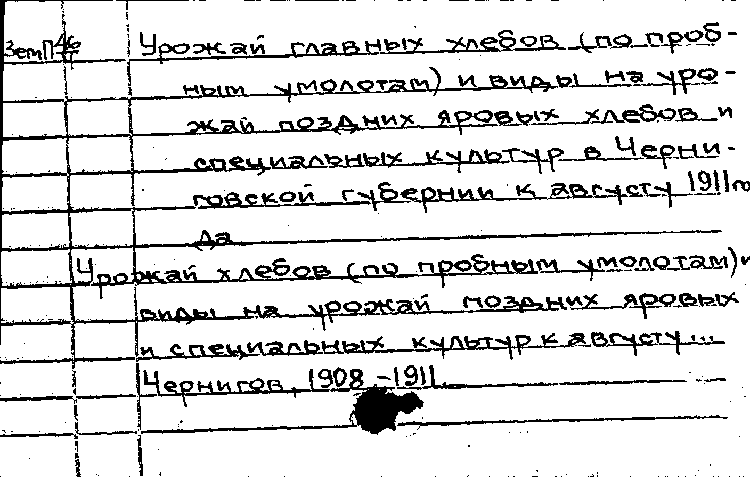 ЗемП Урожай главных хлебов (по проб-
ным умолотам) и виды на уро-
жай поздних яровых хлебов и
специальных культур в Черни-
говской губернии к августу 1911 го
да
Урожай хлебов (по пробным умолотам) и
виды на урожай поздних яровых
и специальных культур к августу...
Чернигов, 1908-1911.